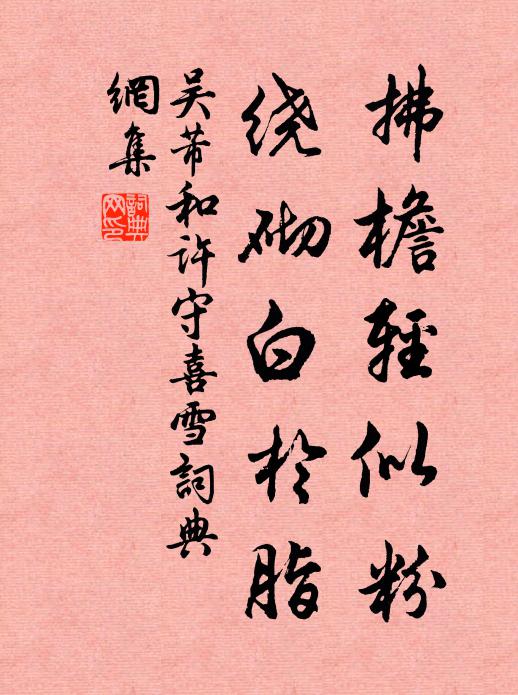 拂檐轻似粉
绕砌白於脂
吴芾和许守喜雪詞典
網集
詞典
网印